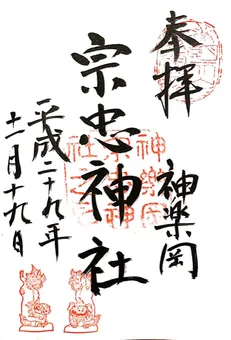 奉拝
神楽岡
宗忠神社
平成二十九年
十一月十九日